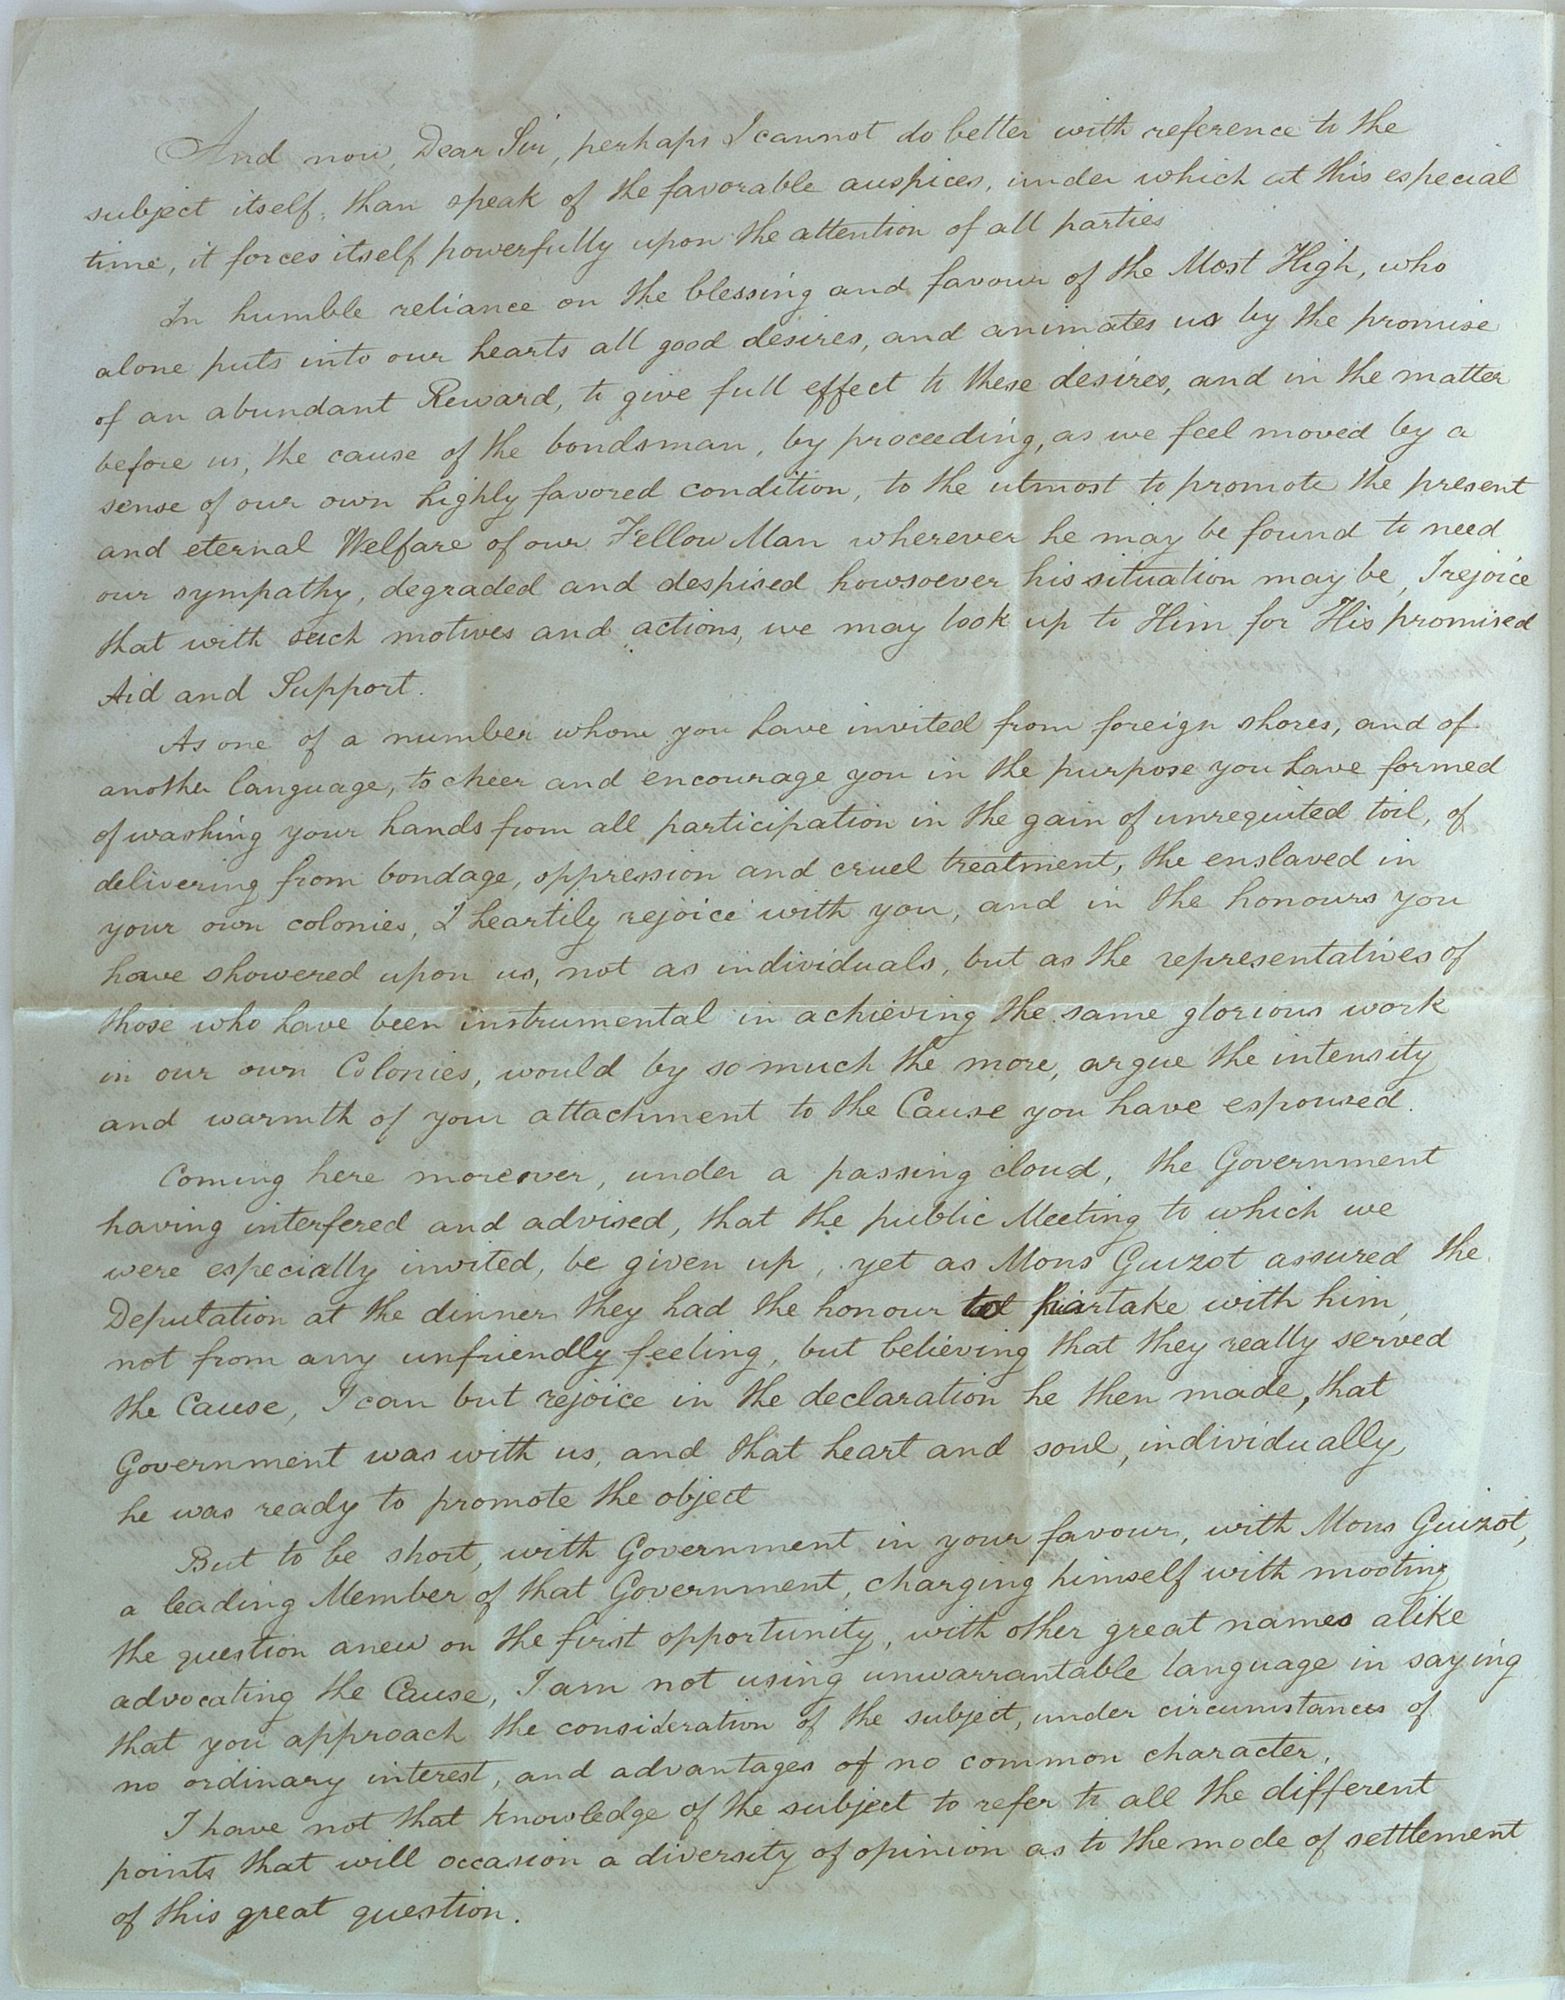 And now, Dear Sir, perhaps I cannot do better with reference to the
subject itself, than speak of the favorable auspices, under which at this especial
time, it forces itself powerfully upon the attention of all parties
In humble reliance on the blessing and favour of the Most High, who
alone puts into our hearts all good desires, and animates us by the promise
of an abundant Reward, to give full effect to these desires, and in the matter
before us, the cause of the bondsman, by proceeding, as we feel moved by a
sense of our own highly favored condition, to the utmost to promote the present
and eternal Welfare of our Fellow Man wherever he may be found to need
our sympathy, degraded and despised howsoever his situation may be, I rejoice
that with such motives and actions, we may look up to Him for His promised
Aid and Support.
As one of a number whom you have invited from foreign shores, and of
another language, to cheer and encourage you in the purpose you have formed
of washing your hands from all participation in the gain of unrequited toil, of
delivering from bondage, oppression and cruel treatment, the enslaved in
your own colonies, I heartily rejoice with you, and in the honours you
have showered upon us, not as individuals, but as the representatives of
those who have been instrumental in achieving the same glorious work
in our own Colonies, would by so much the more, argue the intensity
and warmth of your attachment to the Cause you have espoused.
Coming here moreover, under a passing cloud, the Government
having interfered and advised, that the public Meeting to which we
were especially invited, be given up, yet as Mons Guizot assured the
Deputation at the dinner they had the honour to partake with him,
not from any unfriendly feeling, but believing that they really served
the Cause, I can but rejoice in the declaration he then made, that
Government was with us, and that heart and soul, individually,
he was ready to promote the object
But to be short, with Government in your favour, with Mons Guizot,
a leading Member of that Government, charging himself with mooting
the question anew on the first opportunity, with other great names alike
advocating the Cause, I am not using unwarrantable language in saying
that you approach the consideration of the subject, under circumstances of
no ordinary interest, and advantages of no common character.
I have not that knowledge of the subject to refer to all the different
points that will occasion a diversity of opinion as to the mode of settlement
of this great question.